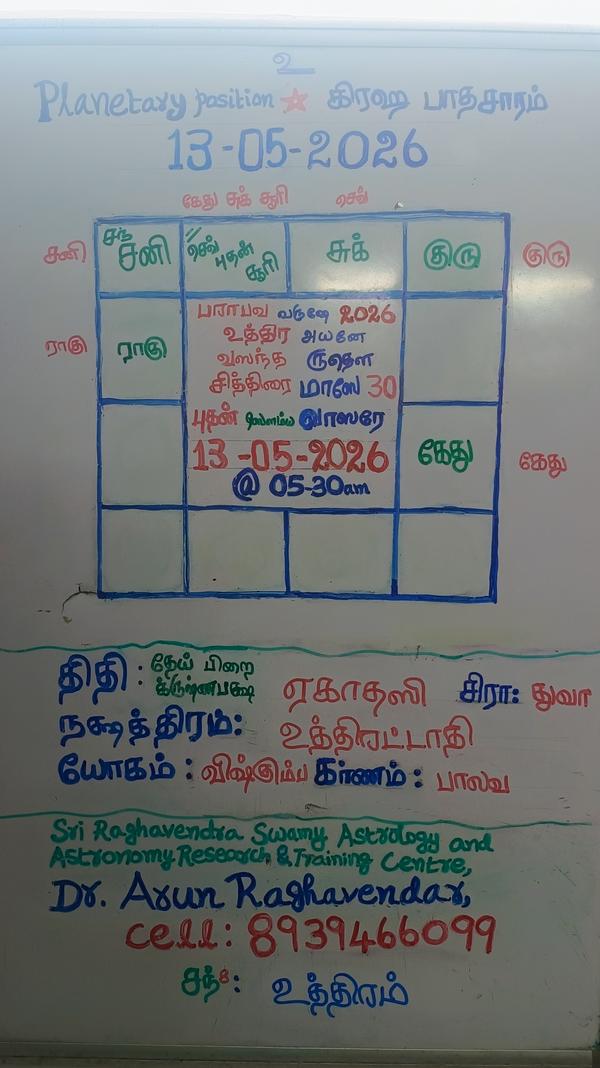 உ
Planetary position ☆ கிரஹ பாதசாரம்
13-05-2026
கேது சுக் சூரி செவ்
சனி சந் சனி செவ் புதன் சூரி சுக் குரு குரு
ராகு ராகு
பராபவ வருஷே 2026
உத்திர அயனே
வஸந்த ருதௌ
சித்திரை மாஸே 30
புதன் ஸௌம்ய வாஸரே
13-05-2026
@ 05-30am
கேது கேது
திதி : தேய் பிறை க்ருஷ்ணபக்ஷ ஏகாதஸி சிரா: துவா
நக்ஷத்திரம்: உத்திரட்டாதி
யோகம் : விஷ்கும்ப கர்ணம் : பாலவ
Sri Raghavendra Swamy Astrology and
Astronomy Research & Training Centre,
Dr. Arun Raghavendar,
cell: 8939466099
சந் : உத்திரம்